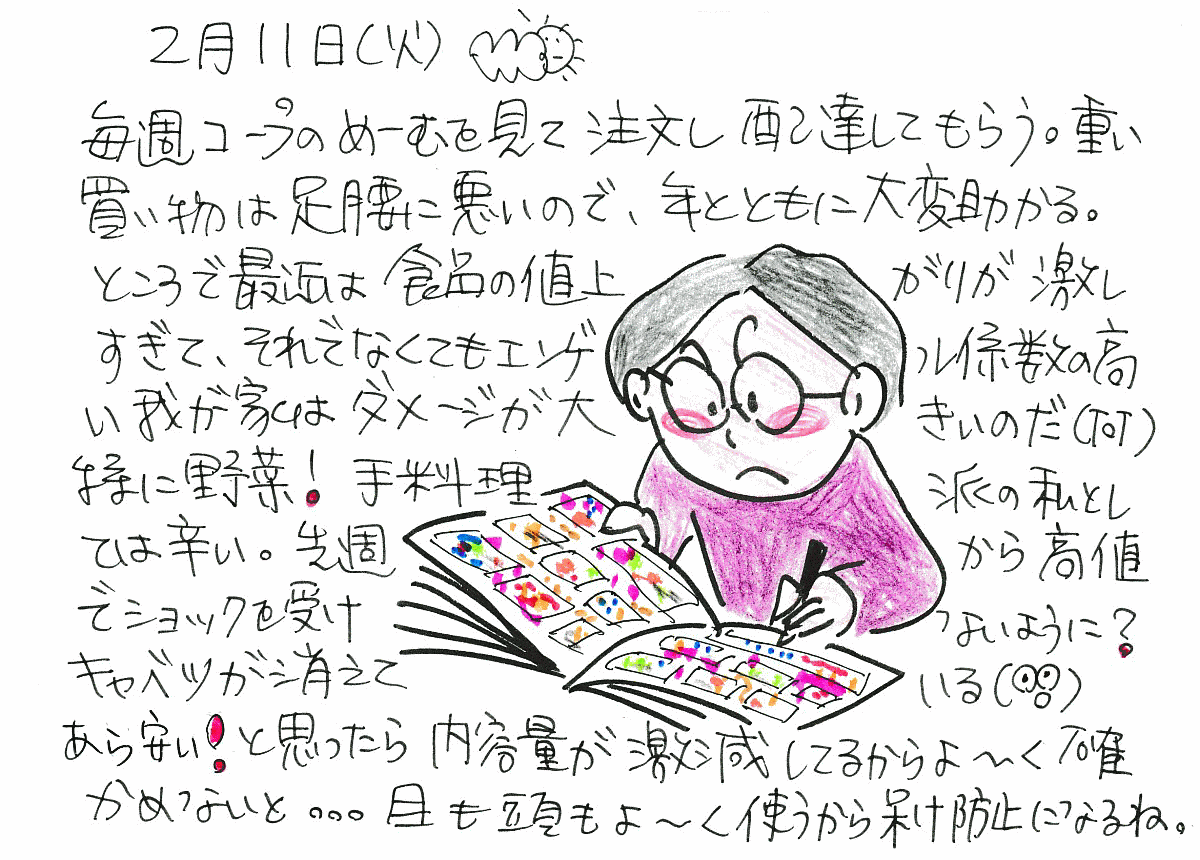 2月11日(火)
毎週コープのめーむを見て注文し配達してもらう。重い
買い物は足腰に悪いので、年とともに大変助かる。
ところで最近は食品の値上がりが激し
すぎて、それでなくてもエンゲル係数の高
い我が家はダメージが大きいのだ(ToT)
特に野菜!手料理派の私とし
ては辛い。先週から高値
でショックを受けないように?
キャベツが消えている(°8°)
あら安い!と思ったら内容量が激減してるからよ〜く確
かめないと...目も頭もよ〜く使うから呆け防止になるね。